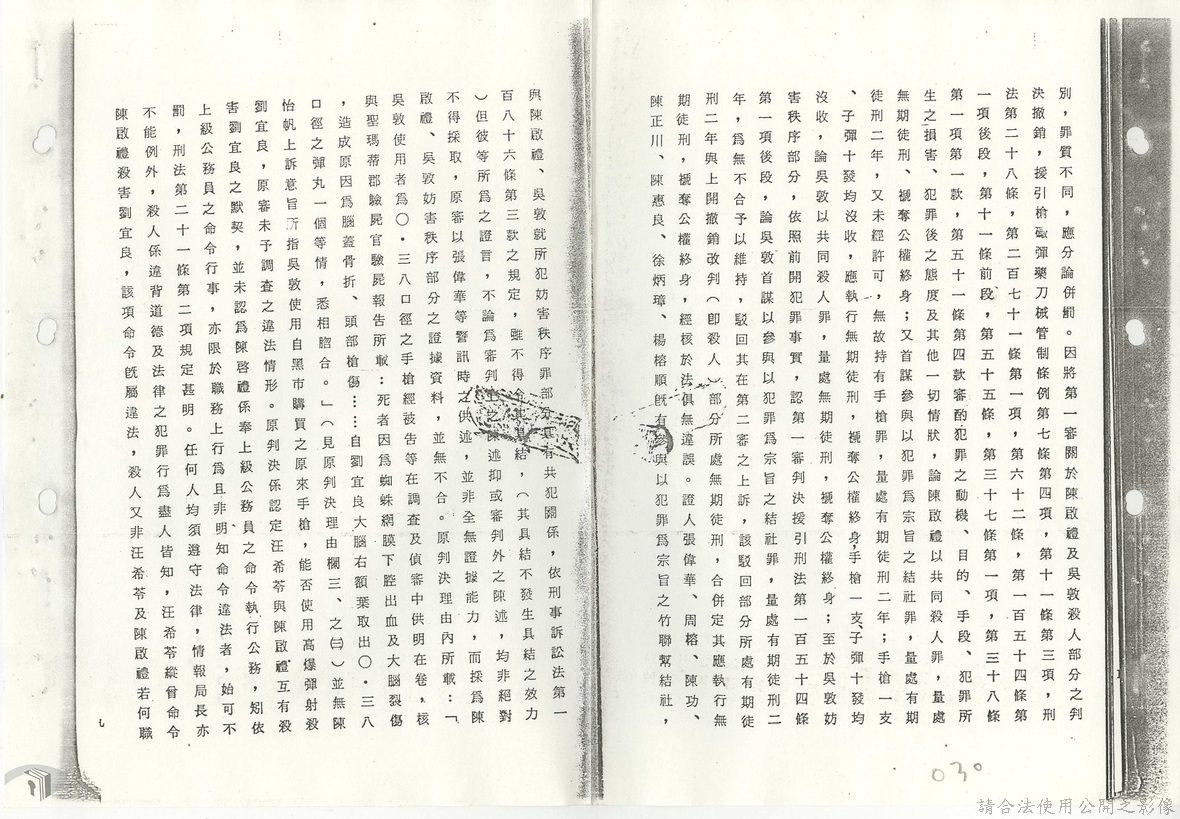 別，罪質不同，應分論併罰。因將第一審關於陳啟禮及吳敦殺人部分之判
決撤銷，援引槍砲彈藥刀械管制條例第七條第四項，第十一條第三項，刑
法第二十八條，第二百七十一條第一項，第六十二條，第一百五十四條第
一項後段，第十一條前段，第五十五條，第三十七條第一項，第三十八條
第一項第一款，第五十一條第四款審酌犯罪之動機、目的、手段、犯罪所
生之損害、犯罪後之態度及其他一切情狀，論陳啟禮以共同殺人罪，量處
無期徒刑、褫奪公權終身；又首謀參與以犯罪為宗旨之結社罪，量處有期
徒刑二年，又未經許可，無故持有手槍罪，量處有期徒刑二年；手槍一支
、子彈十發均沒收，應執行無期徒刑，褫奪公權終身，手槍一支、子彈十發均
沒收，論吳敦以共同殺人罪，量處無期徒刑，褫奪公權終身；至於吳敦妨
害秩序部分，依照前開犯罪事實，認第一審判決援引刑法第一百五十四條
第一項後段，論吳敦首謀以參與以犯罪為宗旨之結社罪，量處有期徒刑二
年，為無不合予以維持，駁回其在第二審之上訴，該駁回部分所處有期徒
刑二年與上開撤銷改判（即殺人）部分所處無期徒刑，合併定其應執行無
期徒刑，褫奪公權終身，經核於法俱無違誤。證人張偉華、周榕、陳功、
陳正川、陳惠良、徐炳璋、楊榕順既有參與以犯罪為宗旨之竹聯幫結社，
與陳啟禮、吳敦就所犯妨害秩序罪部分有共犯關係，依刑事訴訟法第一
百八十六條第三款之規定，雖不得令其具結，（其具結不發生具結之效力
）但彼等所為之證言，不論為審判上之陳述抑或審判外之陳述，均非絕對
不得採取，原審以張偉華等警訊時之供述，並非全無證據能力，而採為陳
啟禮、吳敦妨害秩序部分之證據資料，並無不合。原判決理由內所載：「
吳敦使用者為〇・三八口徑之手槍經被告等在調查及偵審中供明在卷，核
與聖瑪蒂郡驗屍官驗屍報告所載：死者因為蜘蛛網膜下腔出血及大腦裂傷
，造成原因為腦蓋骨折、頭部槍傷……自劉宜良大腦右額葉取出〇・三八
口徑之彈丸一個等情，悉相脗合。」（見原判決理由欄三、之㈢）並無陳
怡帆上訴意旨所指吳敦使用自黑市購買之原來手槍，能否使用高爆彈射殺
劉宜良，原審未予調查之違法情形。原判決係認定汪希苓與陳啟禮互有殺
害劉宜良之默契，並未認為陳啓禮係奉上級公務員之命令執行公務，矧依
上級公務員之命令行事，亦限於職務上行為且非明知命令違法者，始可不
罰，刑法第二十一條第二項規定甚明。任何人均須遵守法律，情報局長亦
不能例外，殺人係違背道德及法律之犯罪行為盡人皆知，汪希苓縱曾命令
陳啟禮殺害劉宜良，該項命令既屬違法，殺人又非汪希苓及陳啟禮若何職
九
030
請合法使用公開之影像